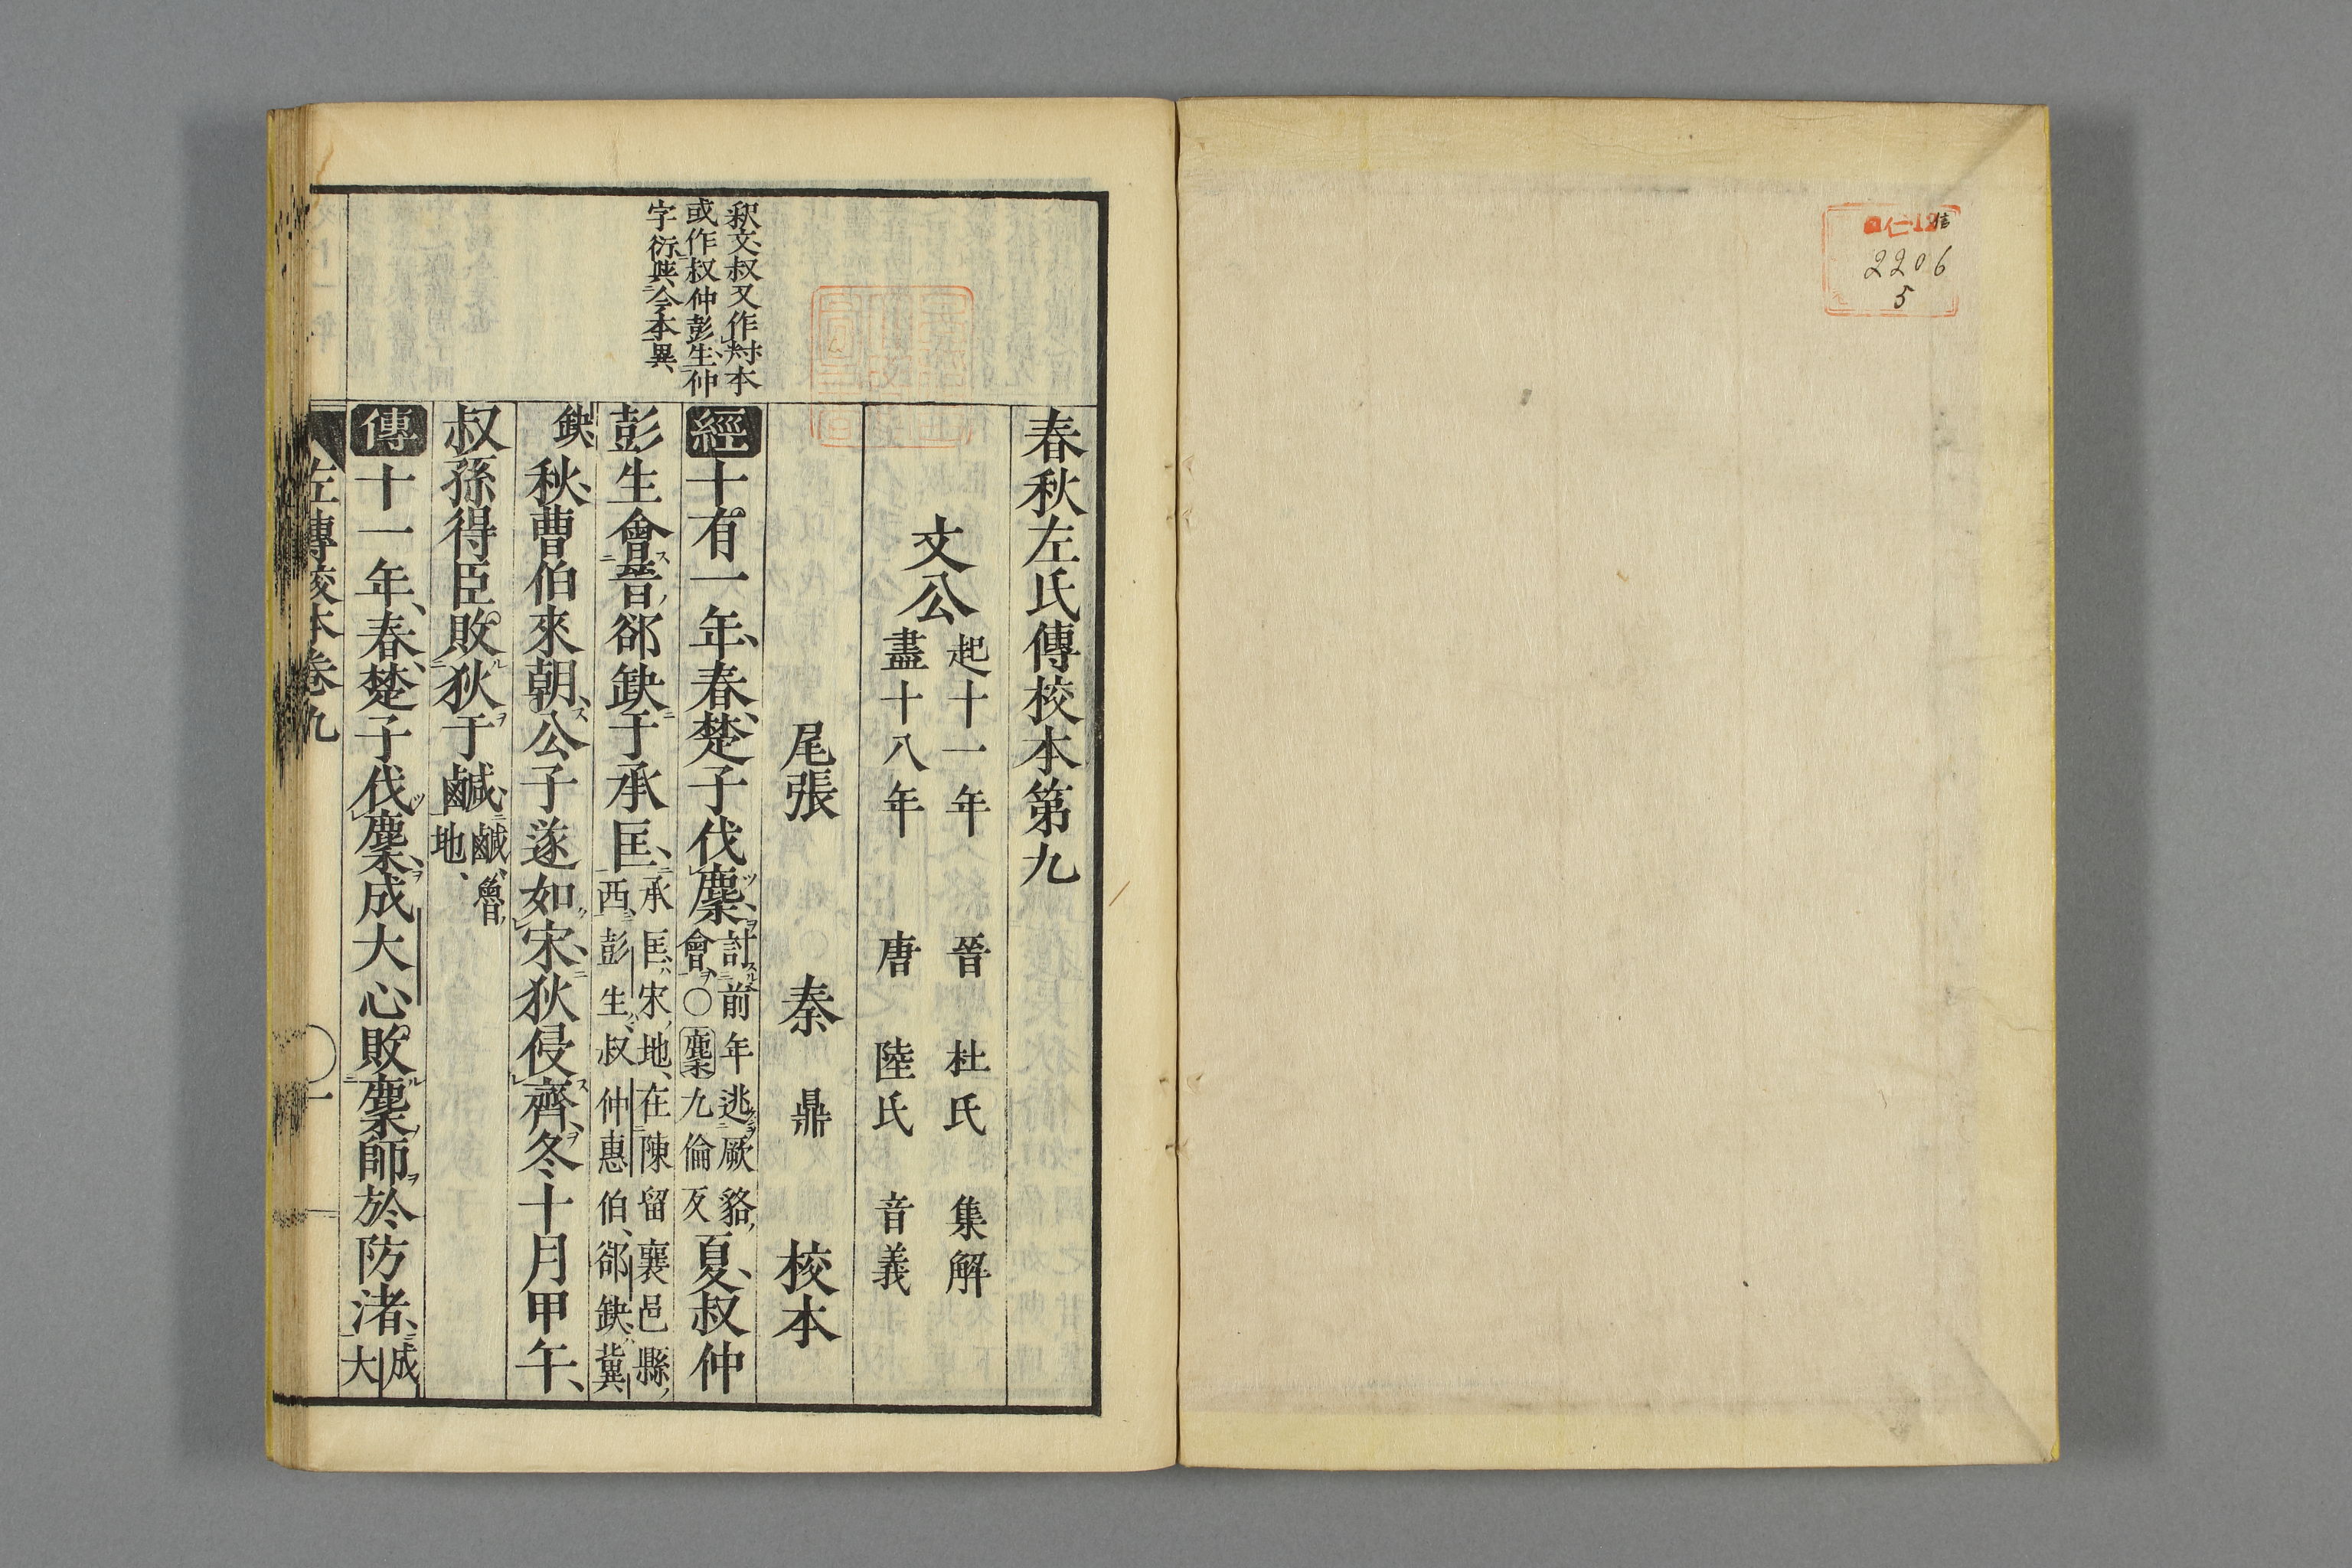 仁12
2206
5
春秋左氏傳校本第九
文公
起十一年
盡十八年
晉 杜氏 集解
唐 陸氏 音義
尾張 秦 鼎 校本
釈文叔又作村本
或作叔仲彭生仲
字衍與今本異
經十有一年春楚子伐麇
討前年逃厥貉
會○麇九倫反
夏叔仲
彭生會晉郤缺于承匡
承匡宋地在陳留襄邑縣
西彭生叔仲惠伯郤缺冀
缺
秋曹伯來朝公子遂如宋狄侵齊冬十月甲午
叔孫得臣敗狄于鹹
鹹魯
地
傳十一年春楚子伐麇成大心敗麇師於防渚
成
大
左傳校本卷九
〇一